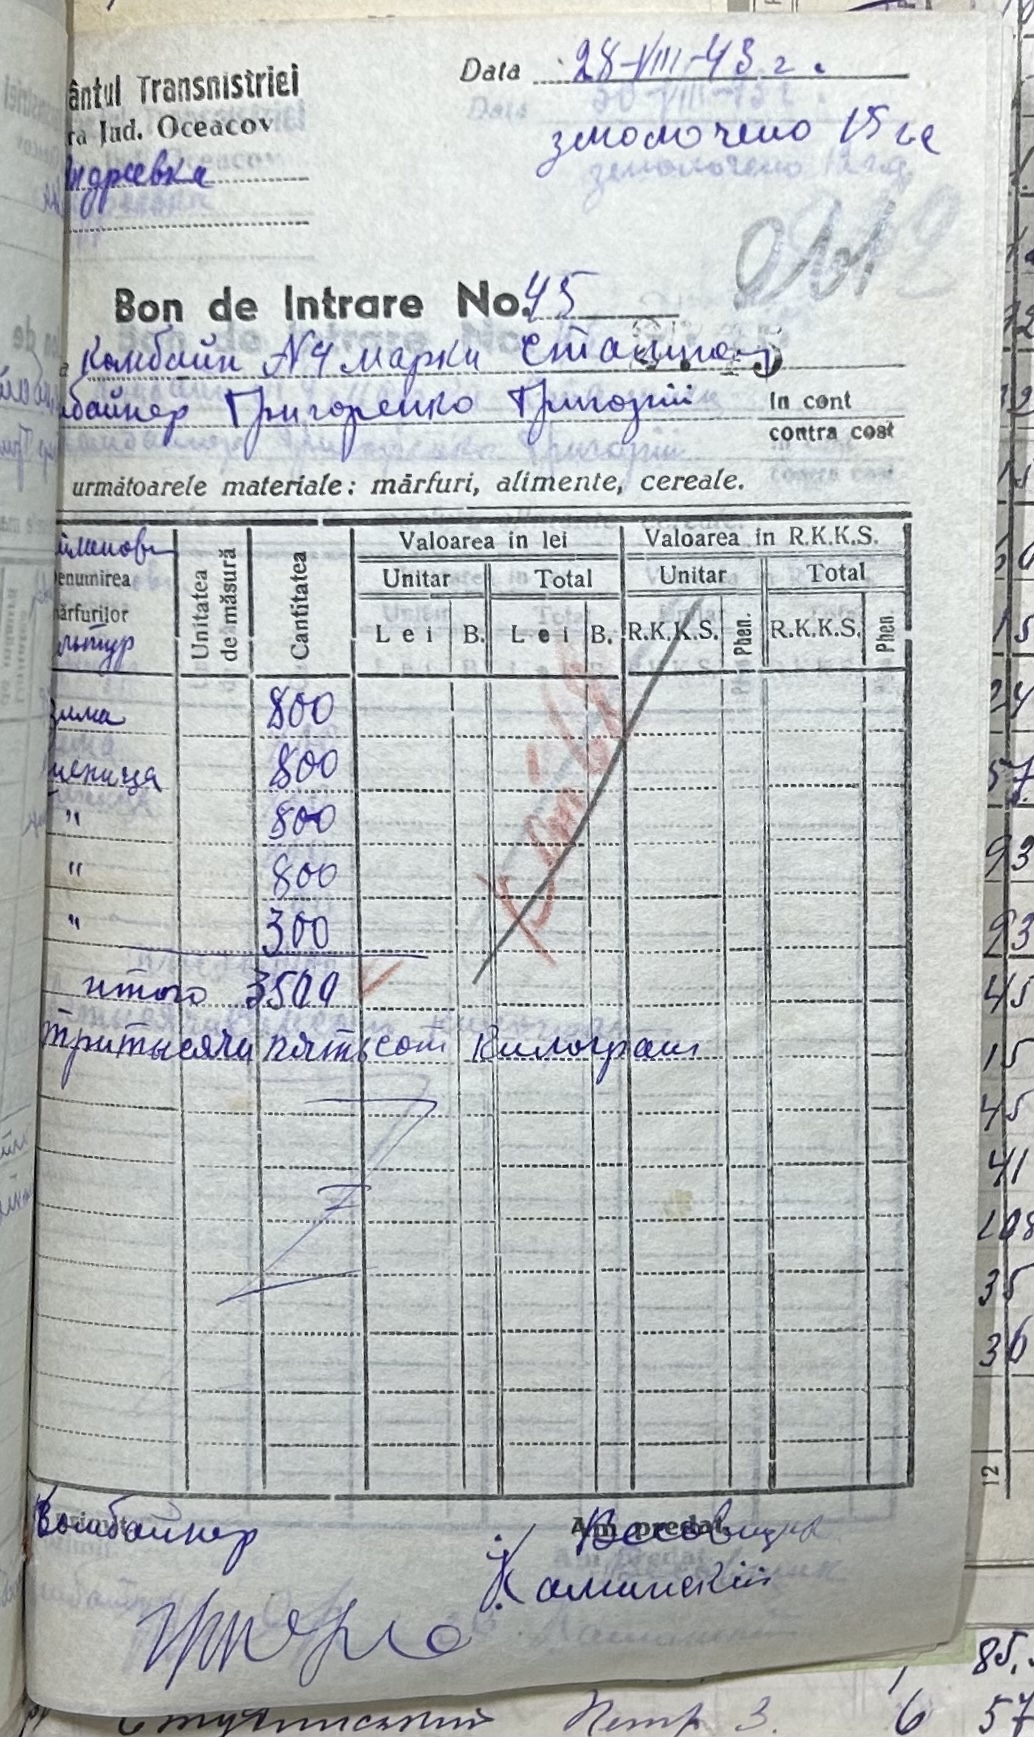 ântul Transnistriei
ra Jud. Oceacov
ндреевка
Data 28-VIII-43 г.
змолочено 15 га
Bon de Intrare No. 45
Комбайн №4 марки Сталинец
байнер Григоренко Григорий In cont
contra cost
următoarele materiale: mărfuri, alimente, cereale.
именов
enumirea
ărfurilor
ультур
Unitatea de măsură
Cantitatea
Valoarea in lei
Valoarea in R.K.K.S.
Unitar Total Unitar Total
Lei B. Lei B. R.K.K.S. Phen. R.K.K.S. Phen
зима 800
шеница 800
" 800
" 800
" 300
итого 3500
три тысячи пятьсот килограм
Комбайнер
Am predat,
Весовщик
Каминский
85.
Петр З. 6 57
12